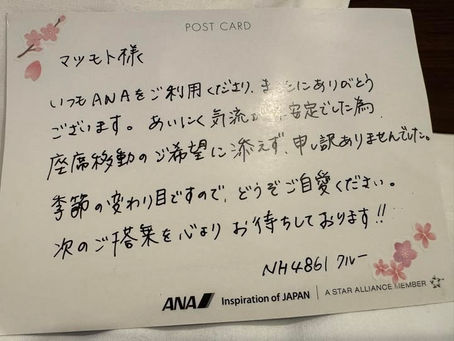 POST CARD
マツモト様
いつもANAをご利用くださり、まことにありがとう
ございます。あいにく気流が不安定でした為、
座席移動のご希望に添えず、申し訳ありませんでした。
季節の変わり目ですので、どうぞご自愛ください。
次のご搭乗を心より お待ちしております!!
NH4861 クルー
ANA Inspiration of JAPAN A STAR ALLIANCE MEMBER